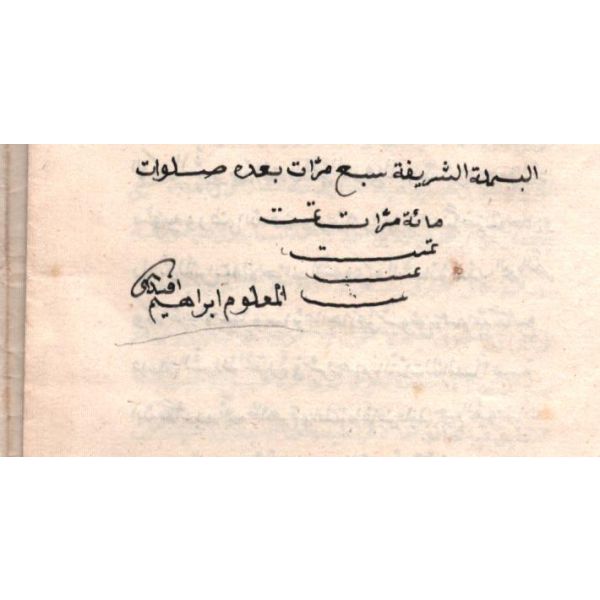 البسملة الشريفة سبع مرّات بعده صلوات
مائة مرّات تمّت
تمت
تمت
تمت المعلوم ابراهيم افندى